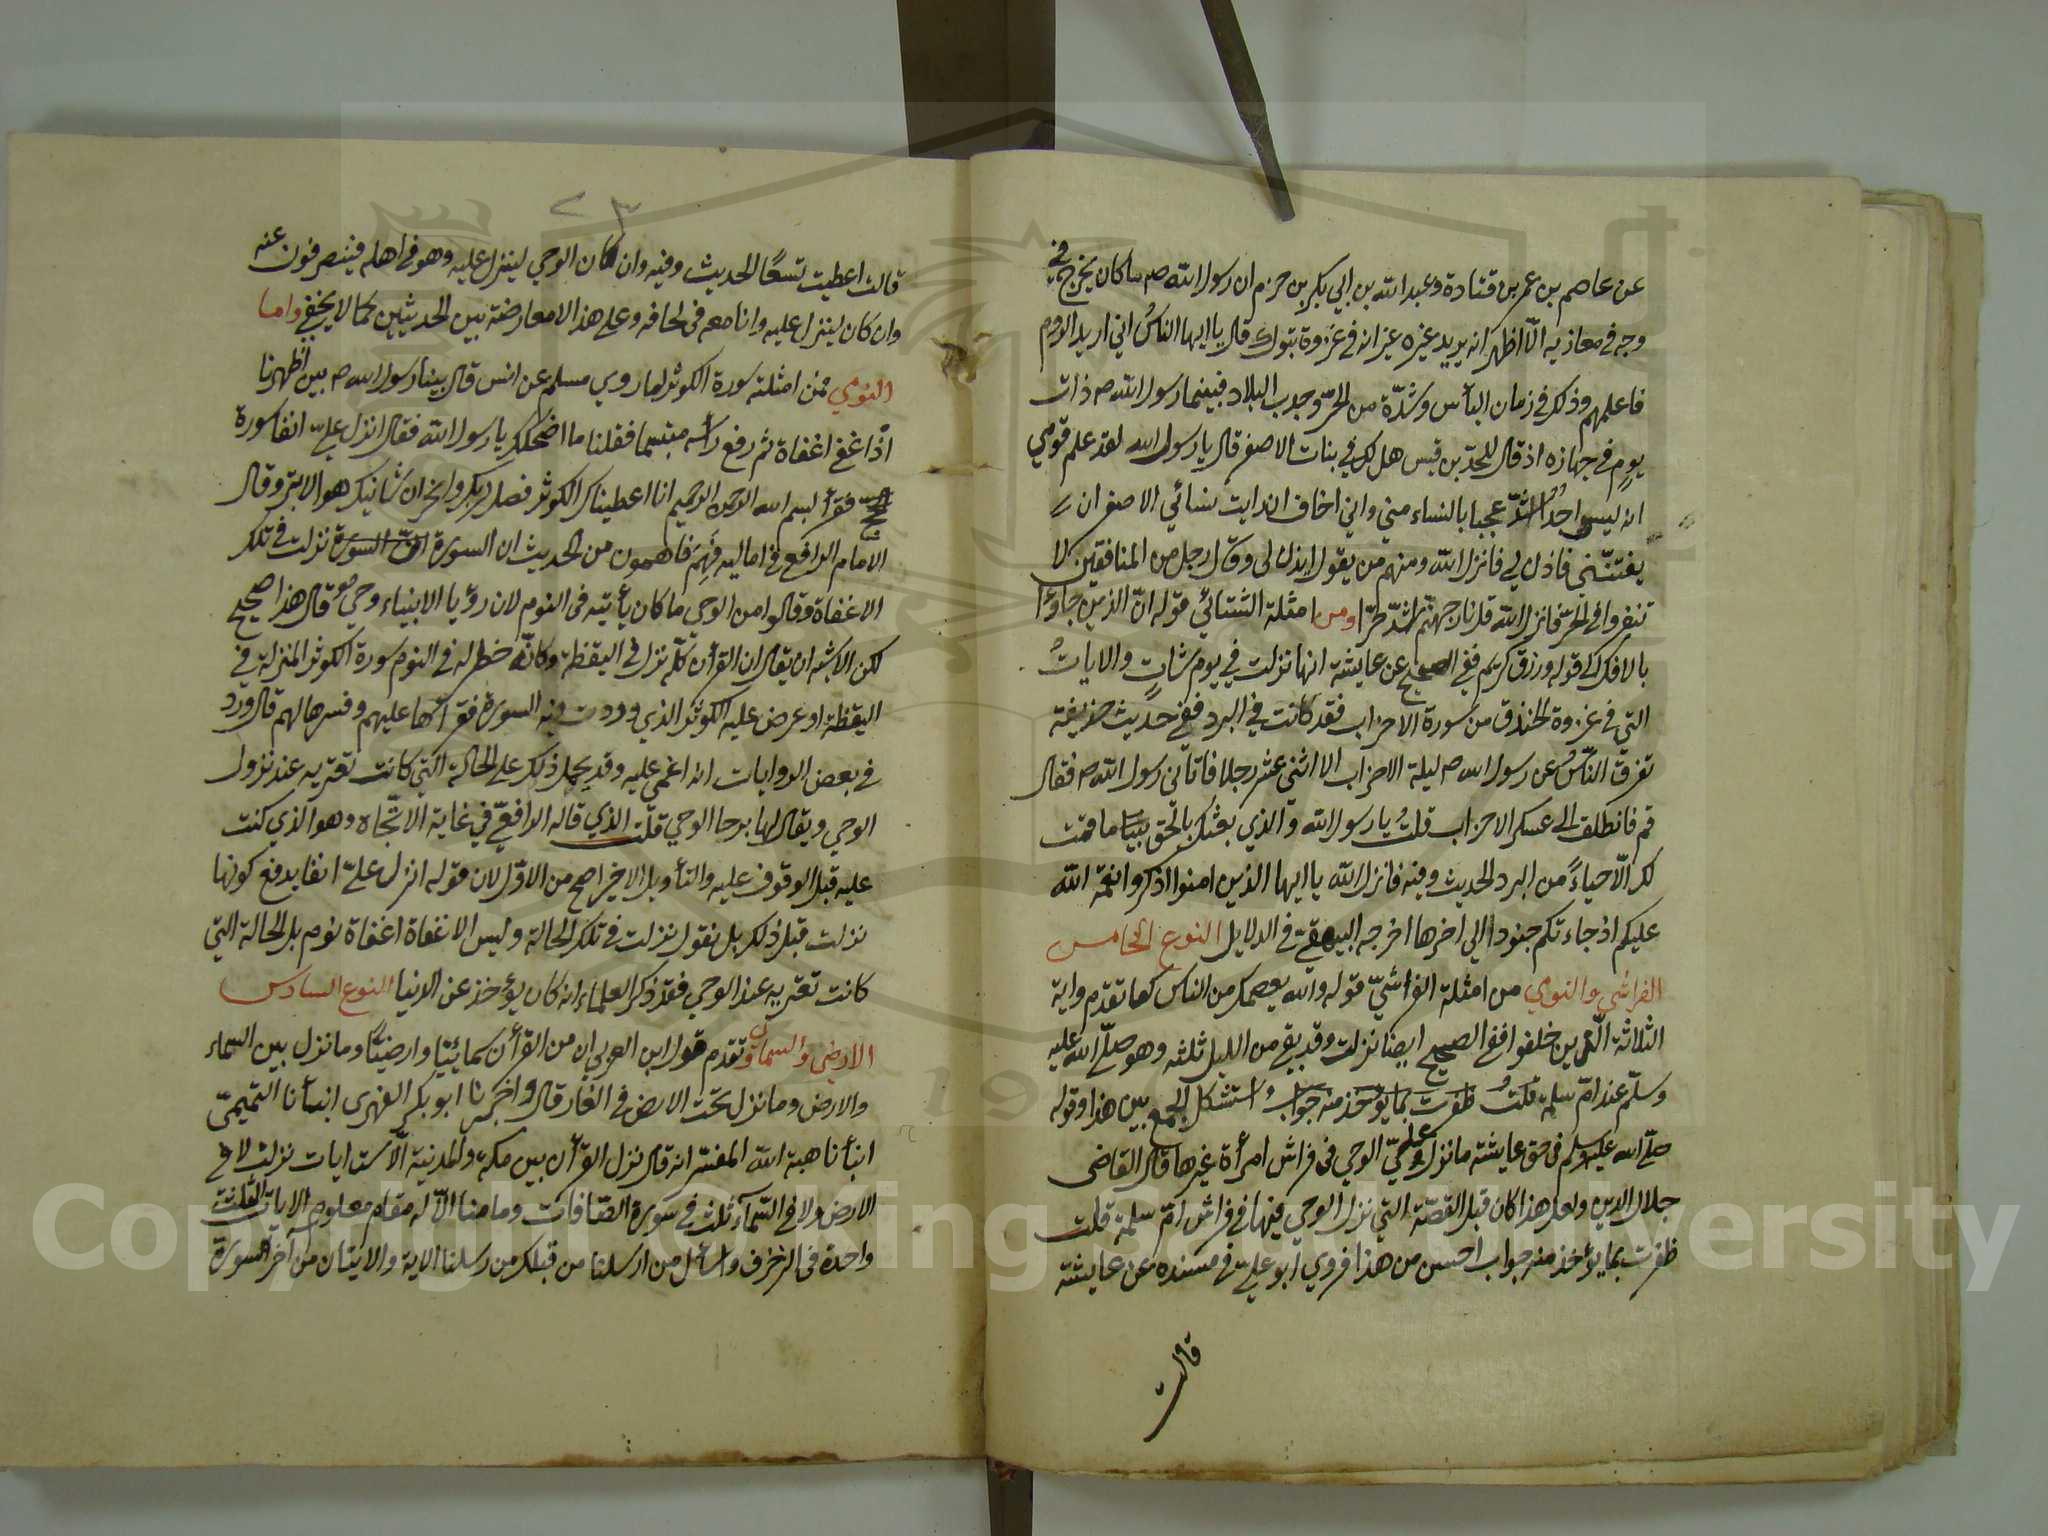 عن عاصم بن عمر بن قتادة وعبد الله بن ابي بكر بن حزم ان رسول الله صم ما كان يخرج في
وجه في مغازيه الّا اظهر انه يريد غيره غير انه في غزوة تبوك قال يا ايها الناسُ اني اريد الروم
فاعلمهم وذلك في زمان البأس وشدّة من الحرّ وجدب البلاد فبينما رسول الله صم ذات
يوم في جهازه اذ قال للجدّ بن قيس هل لك في بنات الاصفر قال يا رسول الله لقد علم قومي
انه ليس احدٌ اشدّ عجبا بالنساء مني واني اخاف ان رايت نسائي الاصفر ان
يفتننّي فاذن لي فانزل الله ومنهم من يقول ايذن لي وقال رجل من المنافقين لا
تنفروا في الحرّ فانزل الله قل نار جهنّم اشدّ حرّا ومن امثلة الشتائي قوله انّ الذين جاؤا
بالافك الى قوله ورزق كريم ففي الصحيح عن عايشة انها نزلت في يوم شاتٍ والاياتُ
التي في غزوة الخندق من سورة الاحزاب فقد كانت في البرد ففي حديث حذيفة
تفرق النّاسُ عن رسول الله صم ليلة الاحزاب الا اثني عشر رجلا فاتاني رسول الله صم فقال
قم فانطلق الى عسكر الاحزاب قلتُ يا رسول الله والذي بعثك بالحق نبيّا ما قمت
لك الّا حياءً من البرد الحديث وفيه فانزل الله يا ايها الذين امنوا اذكروا نعمة الله
عليكم اذ جاءتكم جنود الى اخرها اخرجه البيهقي في الدلايل النوع الخامس
الفراشي والنومي من امثلة الفراشيّ قوله والله يعصمك من الناس كما تقدّم واية
الثلاثة الّذين خلفوا ففي الصحيح ايضا نزلت وقد بقي من الليل ثلثه وهو صلّى الله عليه
وسلّم عند امّ سلمة قلتُ ظفرت بما يؤخذ منه جواب واستشكل الجمع بين هذا وقوله
صلّى الله عليه وسلم في حق عايشة ما نزل عليّ الوحي في فراش امرأة غيرها قال القاضي
جلال الدين ولعل هذا كان قبل القصّة التي نزل الوحي فيها في فراش امّ سلمة قلت
ظفرت بما يؤخذ منه جواب احسن من هذا فروي ابو علي في مسنده عن عايشة
قالت
٢٣
قالت اعطيت تسعًا الحديث وفيه وان كان الوحي لينزل عليه وهو في اهله فينصرفون عنه
وان كان لينزل عليه وانا معه في لحافه وعلى هذا لا معارضة بين الحديثين كما لا يخفي واما
النومي فمن امثلته سورة الكوثر لما روي مسلم عن انس قال بينا رسول الله صم بين اظهرنا
اذْ اغفي اغفاة ثم رفع رأسه مبتسما فقلنا ما اضحكك يا رسول الله فقال انزل عليّ انفا سورة
فقرأ بسم الله الرحمن الرحيم انا اعطيناك الكوثر فصل لربك وانحر ان شانيك هو الابتر وقال
الامام الرافعي في اماليه فَهِمَ فاهمون من الحديث ان السورة انّ السورة نزلت في تلك
الاغفاة وقالوا من الوحي ما كان يأتيه في النوم لان رؤيا الانبياء وحي قال هذا صحيح
لكن الاشبه ان يقال ان القرأن كلّه نزل في اليقظة وكانّه خطر له في النوم سورة الكوثر المنزلة في
اليقظة او عرض عليه الكوثر الذي وردت فيه السورة فقرأها عليهم وفسرها لهم قال وورد
في بعض الروايات انه اغمي عليه وقد يحمل ذلك على الحالة الّتي كانت تعتريه عند نزول
الوحي ويقال لها برحا الوحي قلت الذي قاله الرافعي في غاية الاتّجاه وهو الذي كنت
عليه قبل الوقوف عليه والتأويل الاخير اصح من الاوّل لان قوله انزل عليّ انفا يدفع كونها
نزلت قبل ذلك بل نقول نزلت في تلك الحالة وليس الاغفاة اغفاة نوم بل الحالة التي
كانت تعتريه عند الوحي فقد ذكر العلماء انه كان يؤخذ عن الدنيا النوع السادس
الارضي والسمائي وتقدم قول ابن العربي ان من القرأن سمائيّا وارضيّا وما نزل بين السماء
والارض وما نزل تحت الارض في الغار قال واخبرنا ابو بكر الفهري انبأنا التميميّ
انبأنا هبة الله المفسّر انه قال نزل القرأن بين مكة والمدينة الّا ست ايات نزلت لا في
الارض ولا في السّمآء ثلث في سورة الصّافات وما منا الّا له مقام معلوم الايات الثلث
واحدة في الزخرف واسئل من ارسلنا من قبلك من رسلنا الاية والايتان من آخر السورة